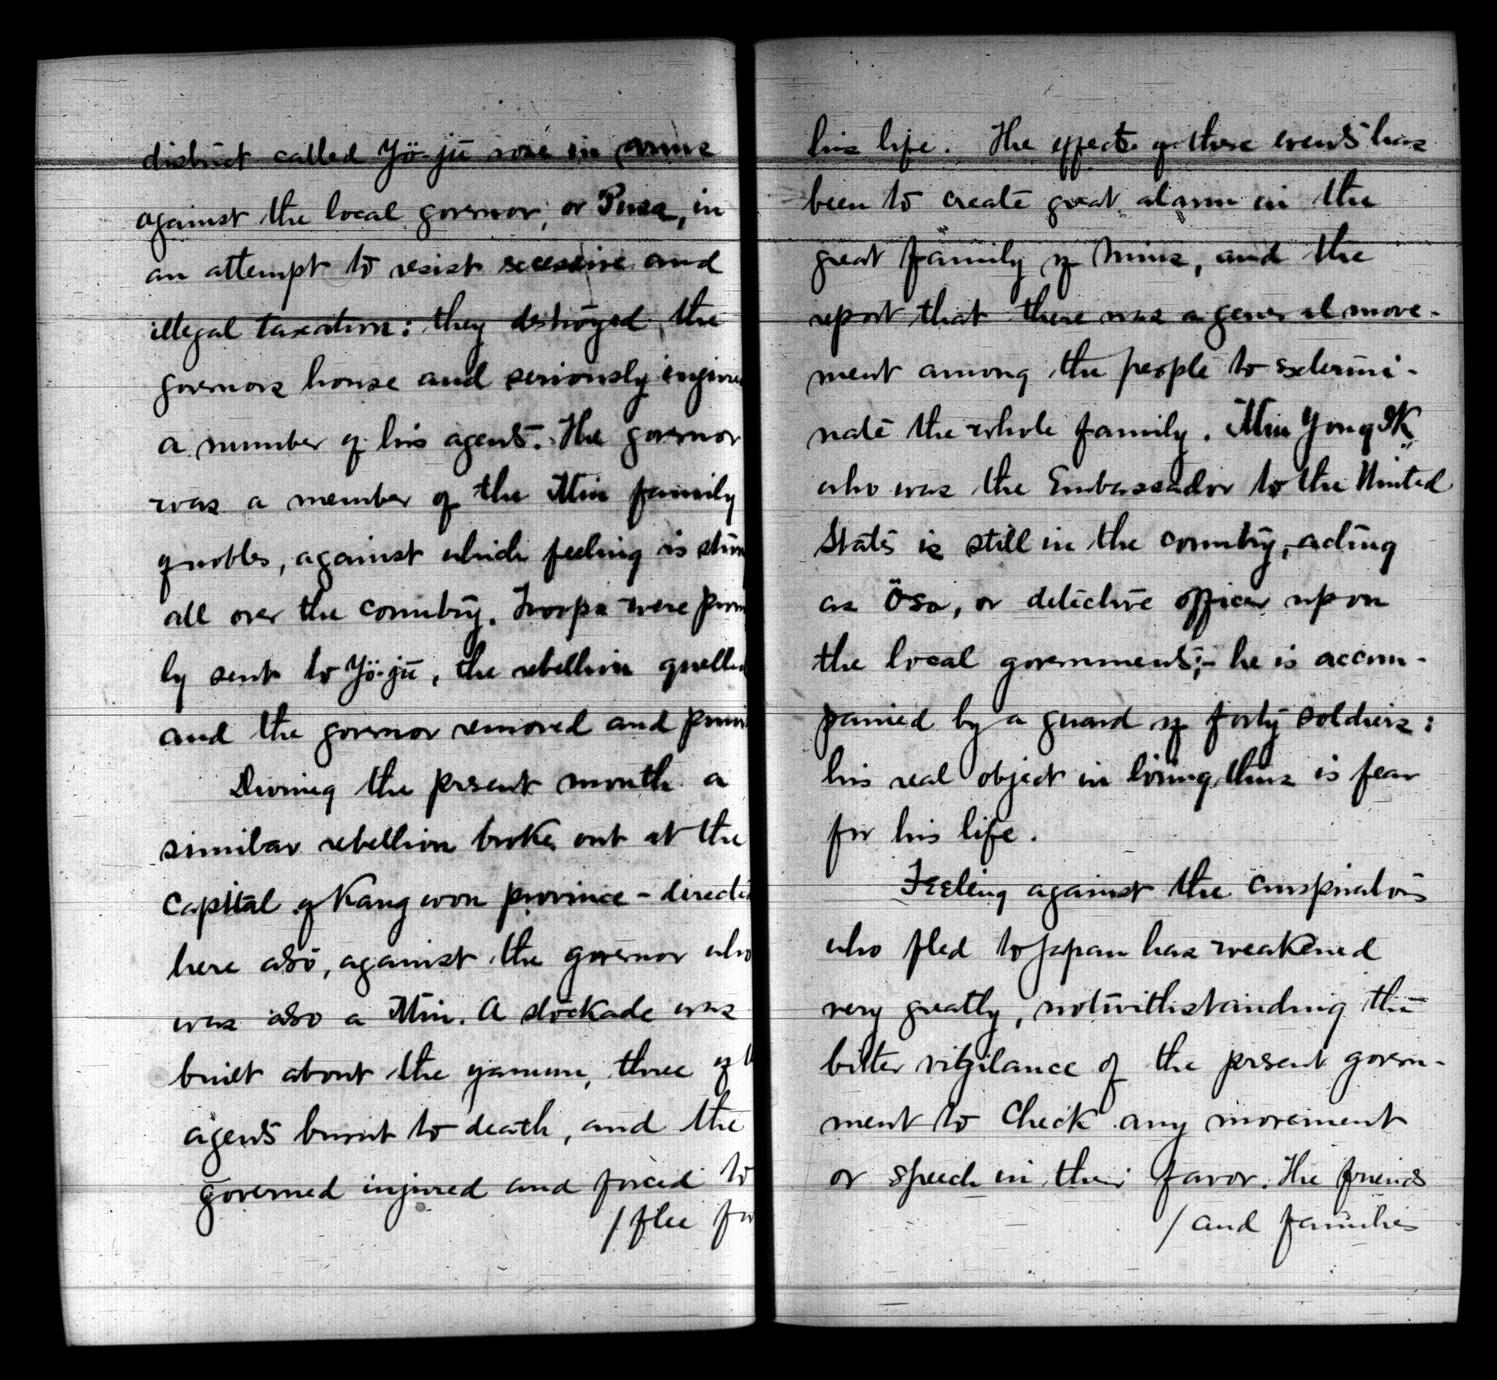 district called Yö-jū rose in arms
against the local governor, or Pusa, in
an attempt to resist excessive and
illegal taxation: they destroyed the
governors house and seriously injure
a number of his agents. The governor
was a member of the Min family
of nobles, against which feeling is stron
all over the country. Troops were prom
ly sent to Yö-jū, the rebellion quelled
and the governor removed and puni
During the present month a
similar rebellion broke out at the
capital of Kang won province - direct
here also, against the governor who
was also a Min. A stockade was
built about the yamun, three of t
agents burnt to death, and the
governed injured and forced to
/ flee fo
his life. The effects of these events has
been to create great alarm in the
great family of Mins, and the
report that there was a general move-
ment among the people to extermi-
nate the whole family. Min Yong Ik
who was the Embassador to the United
States is still in the country, acting
as Ösa, or detective officer upon
the local governments;- he is accom-
panied by a guard of forty soldiers:
his real object in living thus is fear
for his life.
Feeling against the conspirators
who fled to Japan has weakened
very greatly, notwithstanding the
bitter vigilance of the present govern-
ment to check any movement
or speech in their favor. The friends
/ and families